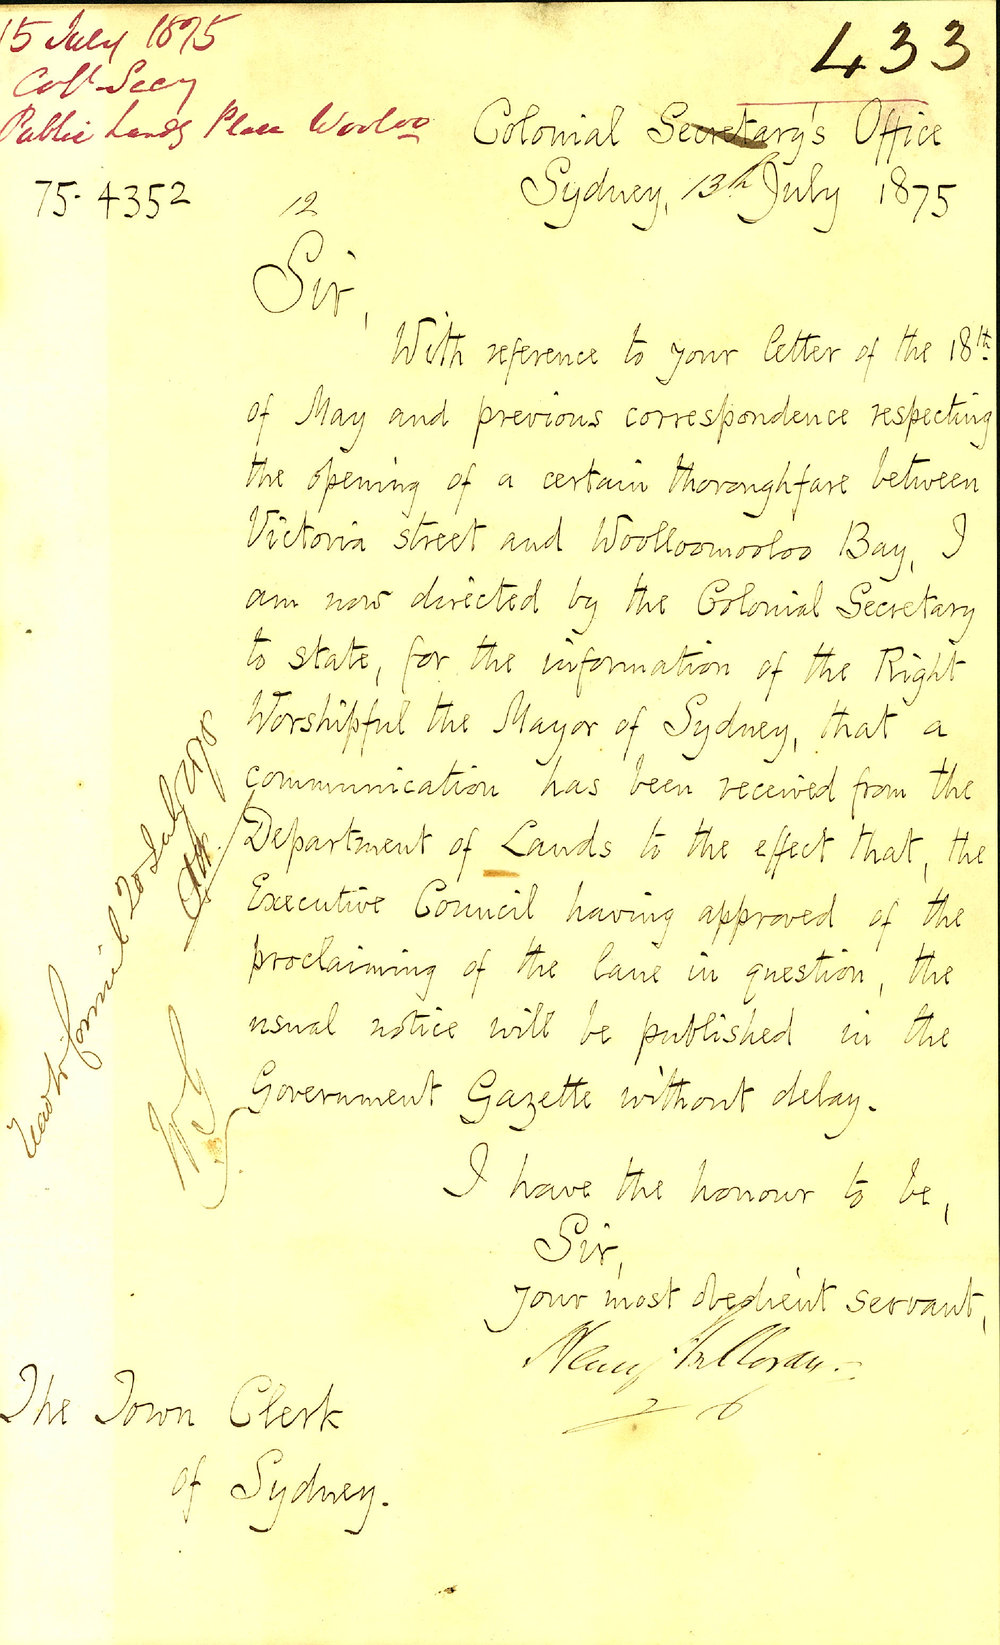 15 July 1875
Coll Secy
Public Lands Place Wooloo
433
Colonial Secretary's Office
75.4352
12
Sydney, 13th July 1875
Sir,
With reference to your letter of the 18th
of May and previous correspondence respecting
the opening of a certain thoroughfare between
Victoria street and Woolloomooloo Bay, I
am now directed by the Colonial Secretary
to state, for the information of the Right
Worshipful the Mayor of Sydney, that a
communication has been received from the
Department of Lands to the effect that, the
Executive Council having approved of the
proclaiming of the lane in question, the
usual notice will be published in the
Government Gazette without delay.
I have the honour to be,
Sir,
your most obedient servant,
Henry Halloran
The Town Clerk
of Sydney.
20 July 1875